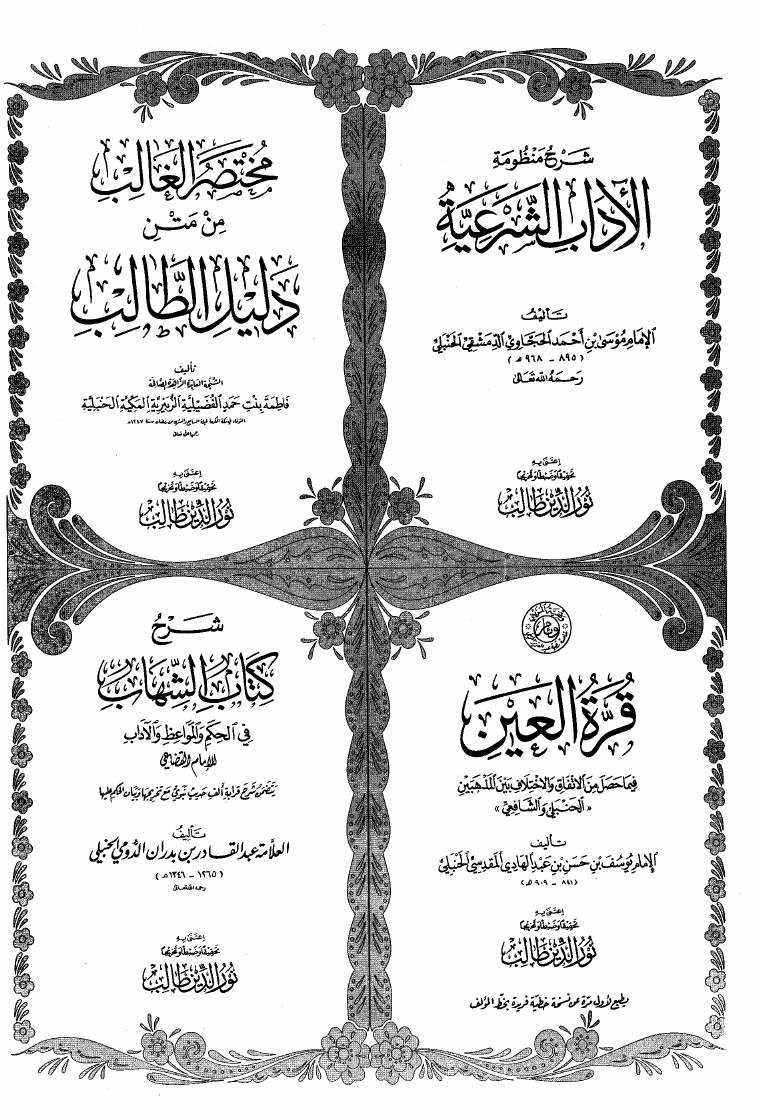 شَرْحُ مَنْظُومَةِ
الآدَابِ الشَّرْعِيَّةِ
تَأليفُ
الإمَامِ مُوسَىٰ بْنِ أَحْمَدَ الحَجَّاوِيِّ الدِّمَشْقِيِّ الحَنْبَلِيِّ
( ٨٩٥ - ٩٦٨ هـ )
رَحِمَهُ اللهُ تَعَالَىٰ
اعتَنَىٰ بِهِ
تحقيقًا وضبطًا وتخريجًا
نُورُ الدِّيْن طَالِبُ
مُخْتَصَرُ الغَالِبِ
مِنْ مَتْنِ
دَلِيلِ الطَّالِبِ
تأليف
الشيخة العابدة الزاهدة الصالحة
فَاطِمَةَ بِنْتِ حَمَدٍ الفُضَيْلِيَّةِ الزُّبَيْرِيَّةِ المَكِّيَّةِ الحَنْبَلِيَّةِ
سنة ١٢٤٧هـ
رحمها الله تعالى
اعتَنَىٰ بِهِ
تحقيقًا وضبطًا وتخريجًا
نُورُ الدِّيْن طَالِبُ
قُرَّةُ العَيْنِ
فِيمَا حَصَلَ مِنَ الاتِّفَاقِ وَالاخْتِلَافِ بَيْنَ المَذْهَبَيْنِ
« الحَنْبَلِيِّ وَالشَّافِعِيِّ »
تأليف
الإمَامِ يُوسُفَ بْنِ حَسَنِ بْنِ عَبْدِ الهَادِي المَقْدِسِيِّ الحَنْبَلِيِّ
(٨٤١ - ٩٠٩ هـ)
اعتَنَىٰ بِهِ
تحقيقًا وضبطًا وتخريجًا
نُورُ الدِّيْن طَالِبُ
يطبع لأول مرة عن نسخة خطية فريدة بخط المؤلف
شَرْحُ
كِتَابِ الشِّهَابِ
فِي الحِكَمِ وَالمَوَاعِظِ وَالآدَابِ
للإمام القضاعي
يتضمن شرح قرابة ألف حديث نبوي مع تخريجها وبيان الحكم عليها
تأليف
العلّامة عبد القادر بن بدران الدُّومي الحنبلي
( ١٢٦٥ - ١٣٤٦ هـ )
رحمه الله تعالى
اعتَنَىٰ بِهِ
تحقيقًا وضبطًا وتخريجًا
نُورُ الدِّيْن طَالِبُ